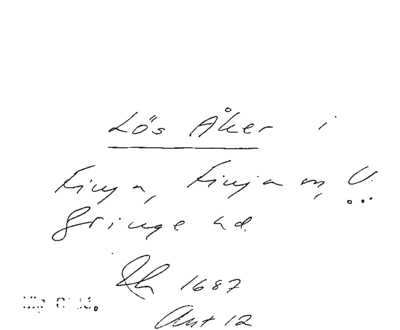 Lös Åker i
Finja, Finja sn, V.
Göinge hd.
1687
Ant 12